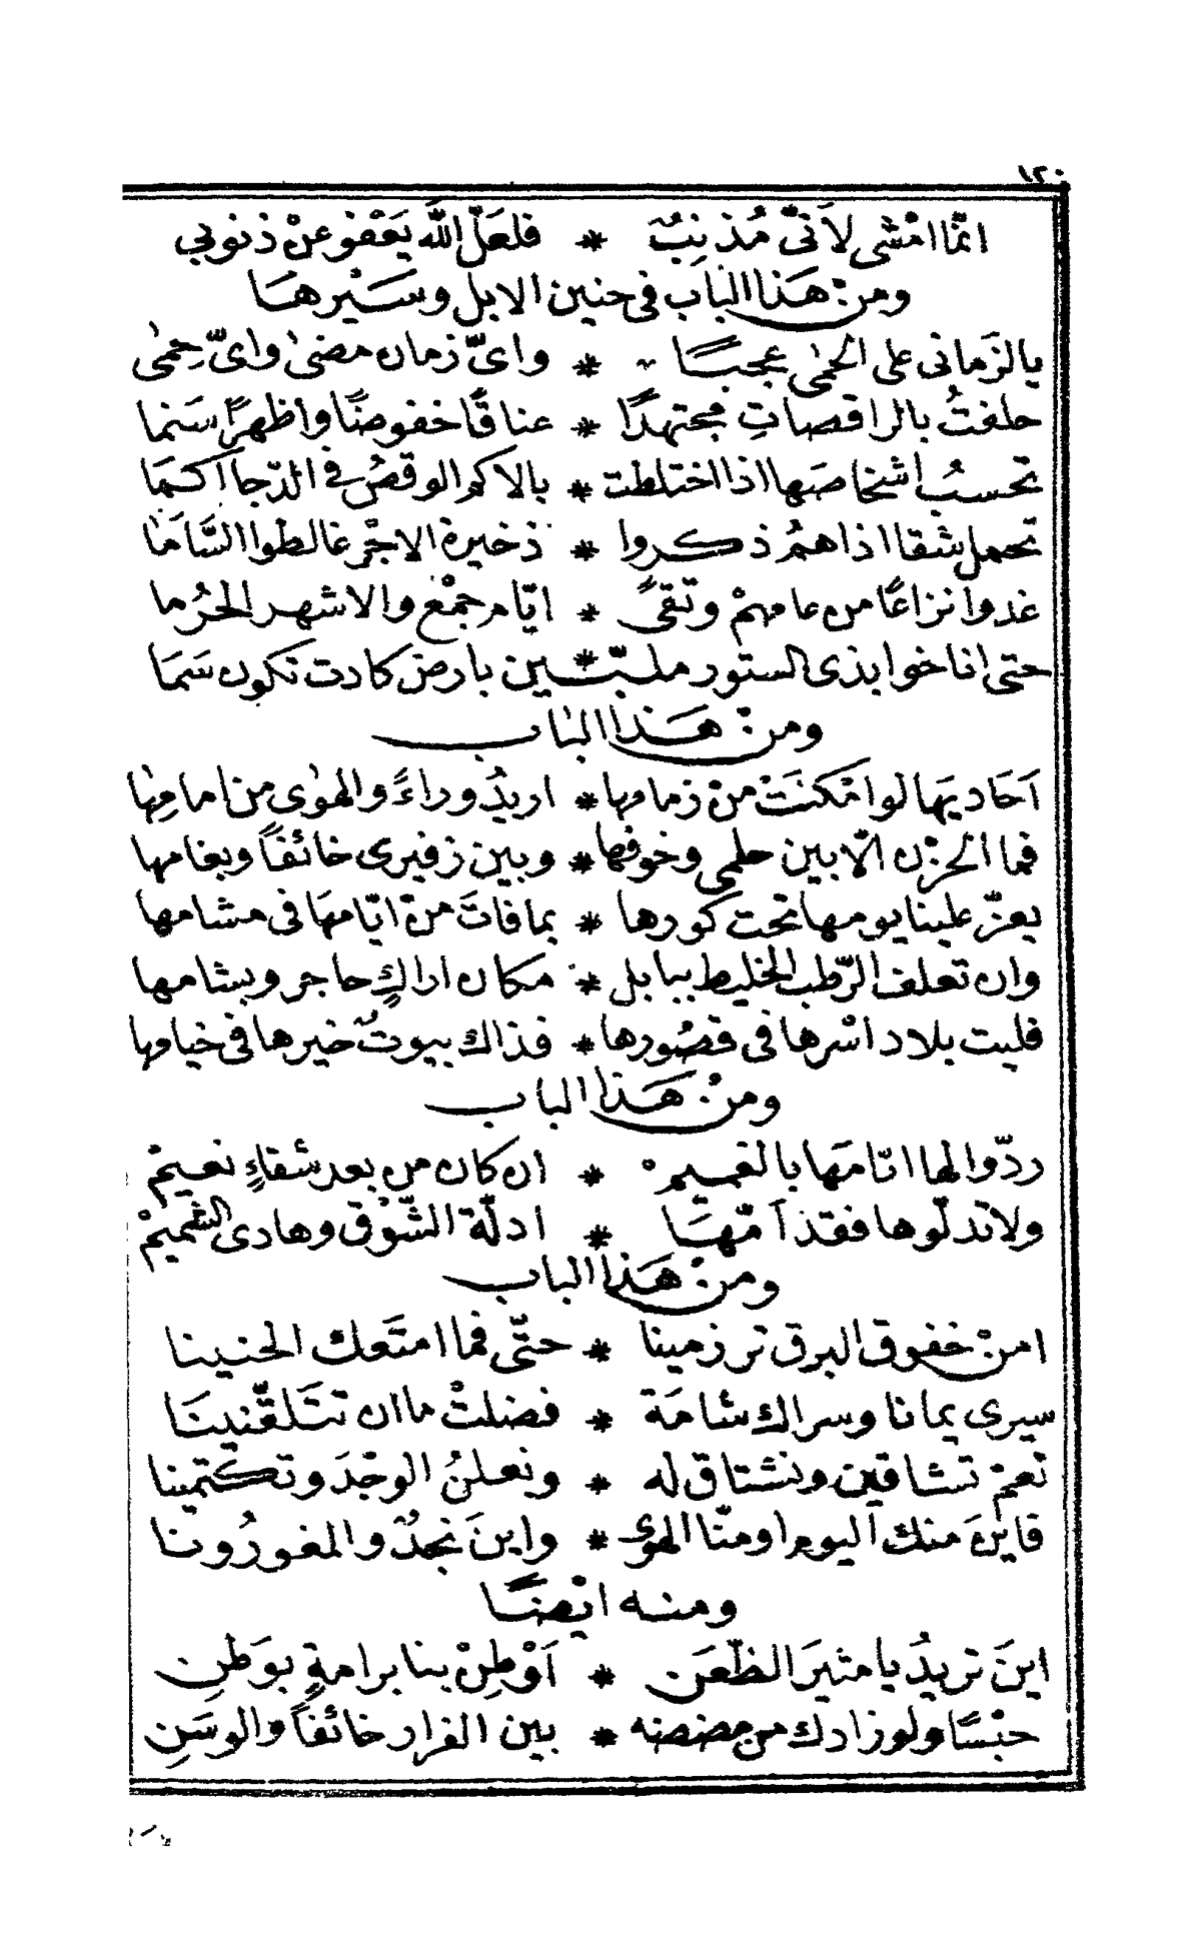 ١٢٠
انّما امْشى لاَنىّ مُذنِبٌ * فلعَلّ اللّٰه يَعْفو عنْ ذنوبي
ومن هَذا الباب فى حنين الابل وسَيْرهَا
يالزَمانى على الحمٰى عجبًا * واىّ زمان مضىٰ واىّ حِمٰى
حلفتُ بالراقصاتِ مجتهدًا * عناقًا خفوضًا واظهرًا سَنما
تحسبُ اشخاصَها اذا اختلطت * بالاكم الوقصُ فى الدّجا اكمَا
تحمل شقا اذا همُ ذكروا * ذخيرة الاجْر غالطوا السَّاَمَا
غدوا نزاعًا من عامهمْ وتقىً * ايّام جمْع والاشهر الحُرُما
حتى اناخوا بذى الستور ملبّــين * بارض كادت تكون سَمَا
ومن هَذا الباب
اَحَاديَها لو امْكنَتْ منْ زمامها * اريدُ وراءً والهوٰى من امامِهٰا
فما الحزن الّا بين حلمى وخوفها * وبين زفيرى خائفاً وبغامها
يعزّ علينا يومها تحت كورها * بما فاتَ منْ ايّامهَا فى مشامها
وان تعلف الرّطب الخليط ببابل * مكان اراكٍ حاجر وبشامها
فليت بلاد اسْرها فى قصُورها * فذاك بيوتٌ خيرها فى خيامها
ومنْ هَذا الباب
ردّوا لها ايّامَها بالغميمْ * ان كان من بعد شقاءٍ نعيمْ
ولا تدلّوها فقد اَمّهَا * ادلّة الشّوْق وهادى الشميمْ
ومنْ هَذا الباب
امنْ خفوق البرق ترزمينا * حتّى فما امتَعك الحنينا
سيرى يمانا وسراك شامَة * فضلتْ ما ان تتَلقّنينَا
نعمْ تشاقين ونشتاق له * ونعلنُ الوجْدَ وتكتمينا
فاينَ منك اليوم او منّا الهوى * واينَ نجدٌ والمغورُونا
ومنه ايْضًا
اينَ تريدُ يا مثيرَ الظّعَن * اَوْطِنْ بنا برامةٍ بوَطَنِ
حبْسًا ولو زادك من مضضه * بين الغرار خائفاً والوسَنِ